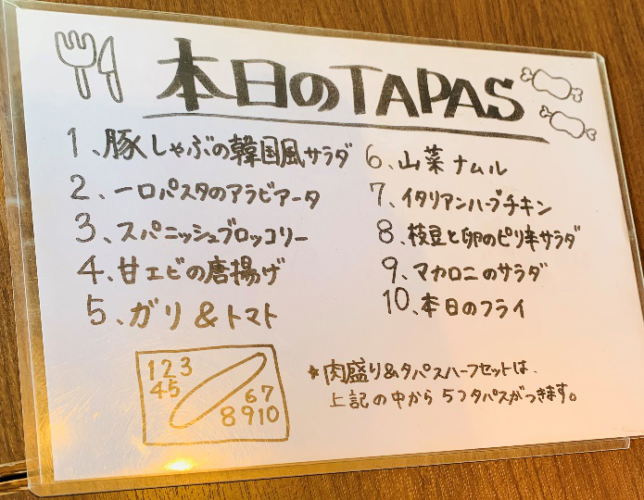 本日のTAPAS
1、豚しゃぶの韓国風サラダ
2、一口パスタのアラビアータ
3、スパニッシュブロッコリー
4、甘エビの唐揚げ
5、ガリ&トマト
6、山菜ナムル
7、イタリアンハーブチキン
8、枝豆と卵のピリ辛サラダ
9、マカロニのサラダ
10、本日のフライ
123
45
67
8910
*肉盛り&タパスハーフセットは、
上記の中から5つタパスがつきます。